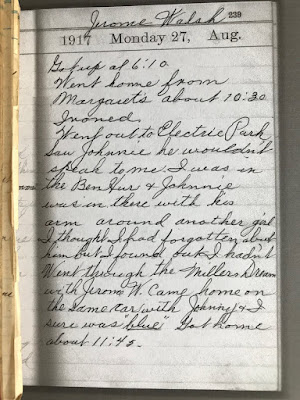 Jerome Walsh
239
1917 Monday 27, Aug.
Got up at 6:10.
Went home from
Margarets about 10:30
Ironed.
Went out to Electric Park,
Saw Johnnie he wouldn't
speak to me. I was in
the Ben Hur & Johnnie
was in there with his
arm around another girl
I thought I had forgotten about
him but I found out I hadn't
Went through the Millers Dream
with Jerome W. Came home on
the same car with Johnny & I
sure was "blue" Got home
about 11:45.